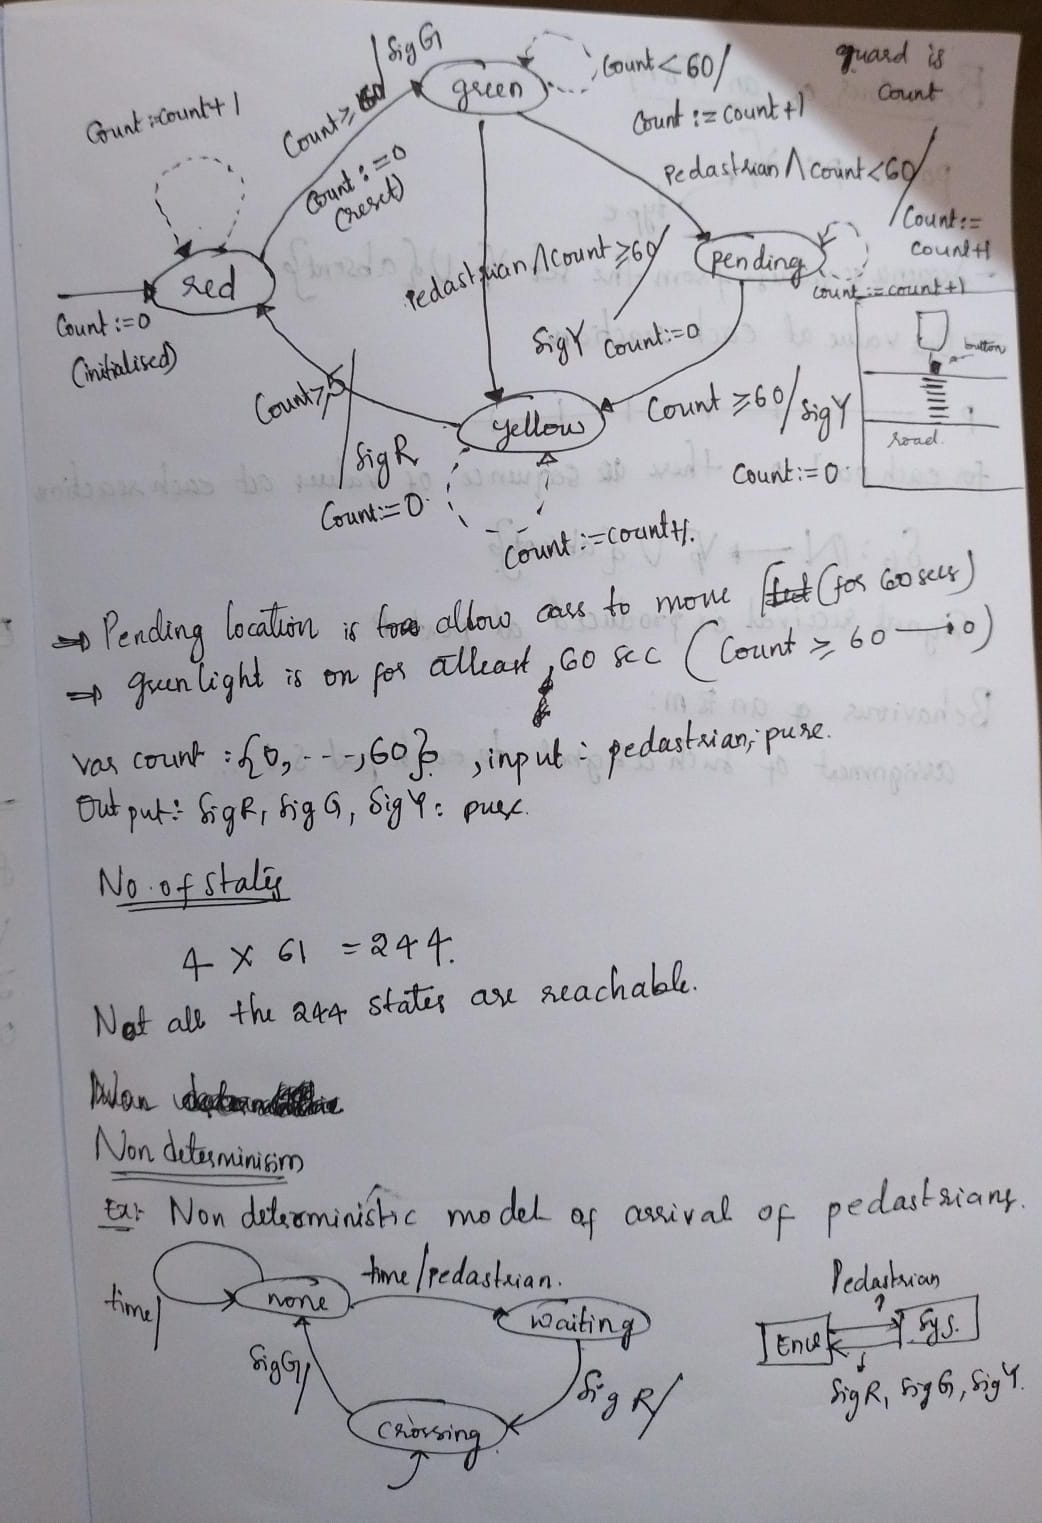 Count:=count+1
Count ≥ 60 / SigG
Count := 0
(reset)
green
Count < 60 /
Count := count +1
guard is
Count
Pedastrian ∧ count < 60 /
Count :=
count+1
red
Count := 0
(initialised)
Pedastrian ∧ count ≥ 60 /
SigY Count:=0
pending
Count := count +1
button
road.
Count ≥ 5 /
SigR
Count:= 0
yellow
Count ≥ 60 / SigY
Count:= 0
Count := count+1.
⇒ Pending location is to allow cars to move (for 60 secs)
⇒ green light is on for atleast 60 sec (Count ≥ 60 → 0)
var count : {0, - - -, 60}, input : pedastrian : pure.
Output : SigR, SigG, SigY : pure.
No. of states
4 × 61 = 244.
Not all the 244 states are reachable.
Non
Non determinism
Ex:- Non deterministic model of arrival of pedastrians.
time /
none
time / pedastrian.
waiting
SigG /
SigR /
crossing
Pedastrian
Env
Sys.
SigR, SigG, SigY.